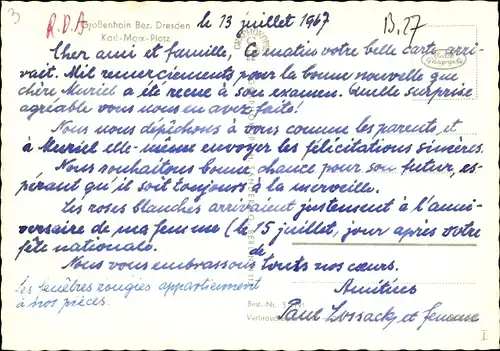 3
R.D.A
le 13 juillet 1967
B.27
Großenhain Bez. Dresden
Karl-Marx-Platz
Cher ami et famille, Ce matin votre belle carte arri-
vait. Mil remerciements pour la bonne nouvelle que
chère Muriel a été recue à son examen. Quelle surprise
agréable vous nous en avez faite!
Nous nous dépêchons à vous comme les parents et
à Meuriel elle-même envoyer les félicitations sincères.
Nous souhaitons bonne chance pour son futur, es-
pérant qu'il soit toujours à la merveille.
Les roses blanches arrivaient justement à l'anni-
versaire de ma femme (le 15 juillet, jour après votre
fête nationale.
Nous vous embrassons de touts nos cœurs.
Les fenêtres rougies appartiennent
à nos pièces.
Amitiées
Paul Lossack et femme
Best.-Nr.
Verbrauc
I